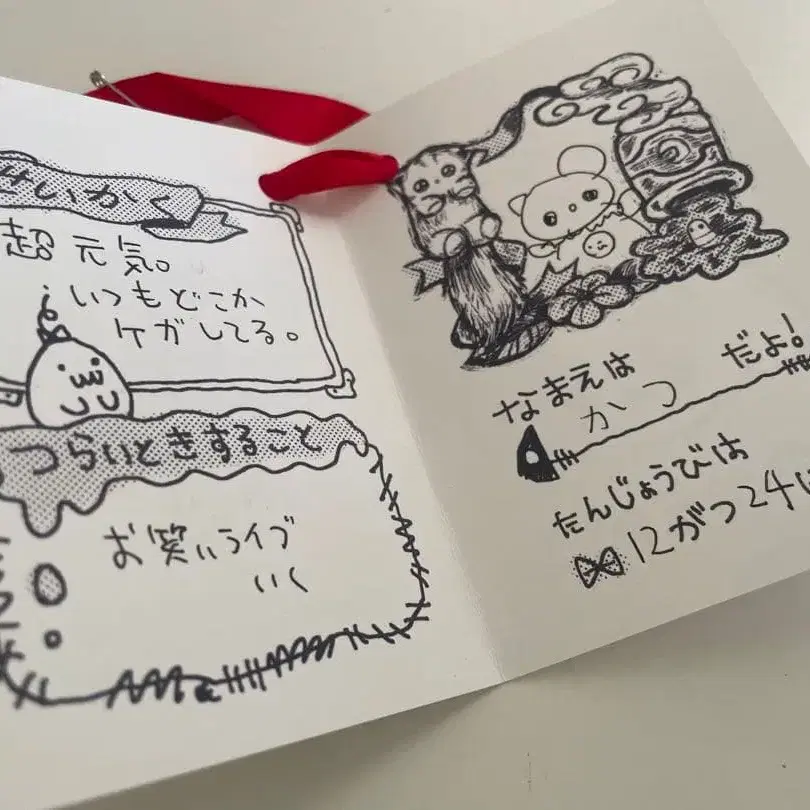 せいかく
超元気。
いつもどこか
ケガしてる。
つらいときすること
お笑いライブ
いく
なまえは かつ だよ!
たんじょうびは
12がつ24